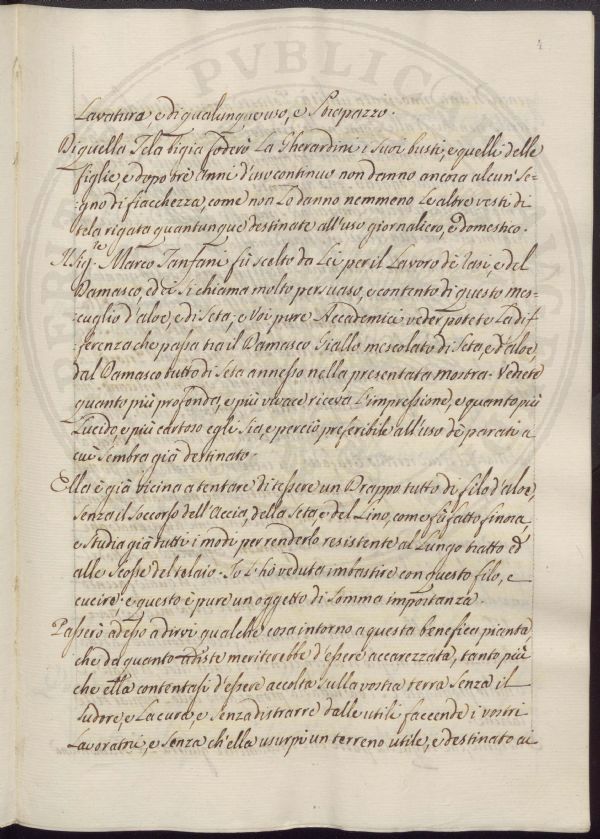 4
Lavatura, e di qualunque uso, e Strapazzo.
Di quella Tela bigia foderò La Gherardini i suoi busti, e quelli delle
figlie, e dopo trè anni d'uso continuo non danno ancora alcun Se-
:gno di fiacchezza, come non Lo danno nemmeno Le altre vesti di
tela rigata quantunque destinate all'uso giornaliero, e domestico.
Il Sig.re Marco Tanfani fù scelto da Lei per il Lavoro de' Rasi, e del
Damasco, ed ei Si chiama molto persuaso, e contento di questo mes-
:cuglio d'aloe, e di Seta; e Voi pure Accademici veder potete La dif-
:ferenza che passa tra il Damasco Giallo mescolato di Seta, e d'aloe,
dal Damasco tutto di Seta annesso nella presentata mostra. Vedete
quanto più profonda, e più vivace riceva L'impressione, e quanto più
Lucido, e più cartoso egli Sia, e perciò preferibile all'uso de' parati a
cui Sembra già destinato.
Ella è già vicina a tentare di tessere un Drappo tutto di filo d'aloe,
Senza il Soccorso dell'Accia, della Seta e del Lino, come fù fatto finora,
e Studia già tutti i modi per renderlo resistente al Lungo tratto ed
alle Scosse del telaio. Io L'hò veduta imbastire con questo filo, e
cucire; e questo è pure un oggetto di Somma importanza
Passerò adesso a dirvi qualche cosa intorno a questa benefica pianta,
che da quanto udiste meriterebbe d'essere accarezzata, tanto più
che ella contentasi d'essere accolta Sulla vostra terra Senza il
Sudore, e La cura, e Senza distrarre dalle utili faccende i vostri
Lavoratori, e Senza ch'ella usurpi un terreno utile, e destinato ai
PVBLICA